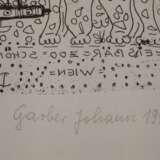 =EIS=BÄR=ZOO=SCHÖN
=WIEN=
Garber Johann 19